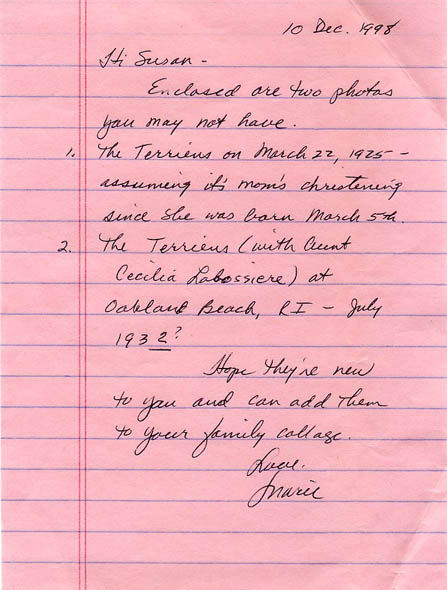 10 Dec. 1998
Hi Susan -
Enclosed are two photos
you may not have.
1. The Terriens on March 22, 1925 -
assuming it's mom's christening
since she was born March 5th.
2. The Terriens (with Aunt
Cecilia Labossiere) at
Oakland Beach, RI - July
1932?
Hope they're new
to you and can add them
to your family collage.
Love.
Marie